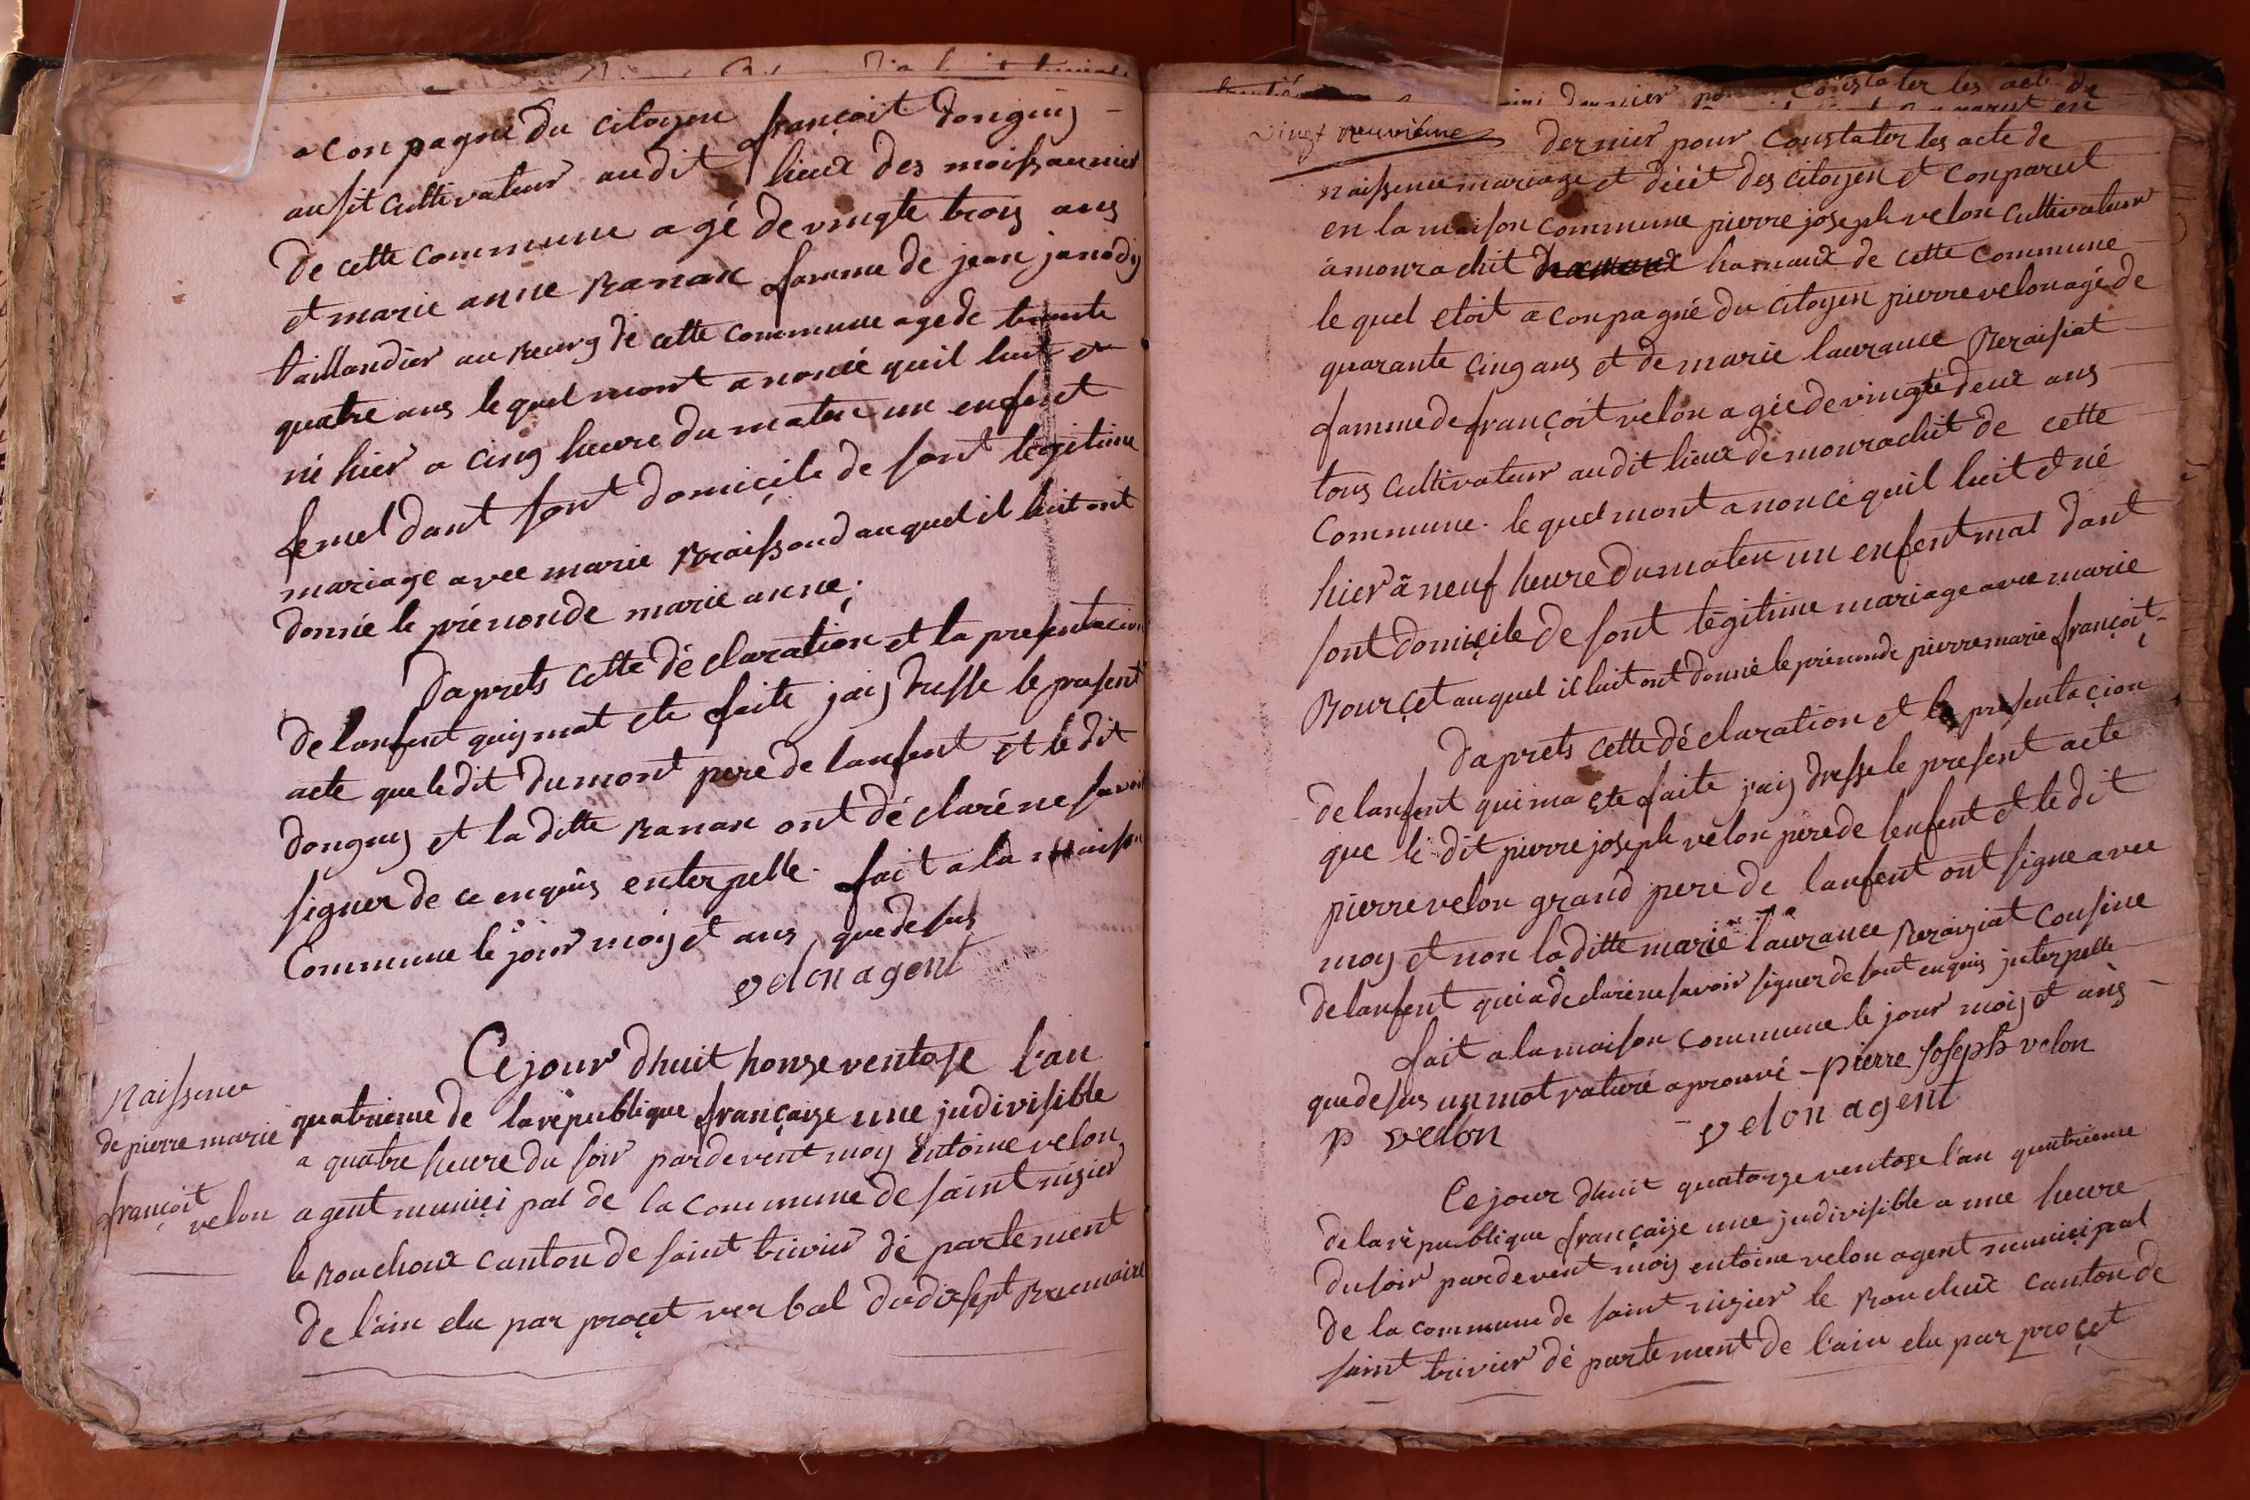 aconpagné du citoyen françoit donguy
ausit cultivateur audit lieux des moissonnier
de cette commune agé de vingte trois ans
et marie anne Ranan famme de jean janody
taillandier au Bourg de cette commune agé de trente
quatre ans le quel mont anoncé quil luit et
né hier a cinq heure du maten un enfent
femel dant sont domicile de sont legitime
mariage avec marie Braissoud auquel il luit ont
donné le prénonde marie anne.
daprets cette déclaration et la presentacion
de lanfent quiymat ete faite jaiy dresse le present
acte que le dit dumont pere de lanfent et le dit
donguy et la ditte Ranan ont déclaré ne savoir
signer de ce enquis enterpelle. fait a la maison
Commune le jour moiy et ans que desus
velon agent
Naissence
de pierre marie
françoit
velon
Ce jour dhuit honze ventose l'an
quatrieme de la république françaize une judivisible
a quatre heure du soir pardevent moy entoine velon
agent municipal de la commune de saint nizier
le Bouchoux canton de saint trivier département
de l'ain elu par proçet verbal du dixsept Brumaire
constater les acte de
vingt neuviéme
dernier pour constater les acte de
naissence mariage et décét des citoyen et conparut
en la maison commune pierre joseph velon cultivateur
a mourachit hamaux de cette commune
le quel etoit aconpagné du citoyen pierre velon agé de
quarante cinq ans et de marie laurance Beraisiat
famme de françoit velon agée de vingte deux ans
tous cultivateur audit lieux de mourachit de cette
commune. le quel mont anoncé quil luit et né
hier a neuf heure du maten un enfent mal dant
sont domicile de sont légitime mariage avec marie
Bourçet auquel il luit ont donné le prénonde pierre marie françoit
daprets cette déclaration et la présentaçion
de lanfent qui ma ete faite jaiy dresse le present acte
que le dit pierre joseph velon père de lenfent et le dit
pierre velon grand pere de lanfent ont signe avec
moy et non la ditte marie laurance Beraiziat cousine
de lanfent qui a declaré ne savoir signer de sont enquis jnterpelle
fait a la maison commune le jour moiy et ans
que desus un mot raturé aprouvé pierre Joseph velon
p velon velon agent
Ce jour dhuit quatorze ventose l'an quatrieme
de la république françaize une judivisible a une heure
du soir pardevent moiy entoine velon agent municipal
de la commune de saint nizier le Bouchux canton de
saint trivier département de l'ain elu par proçet